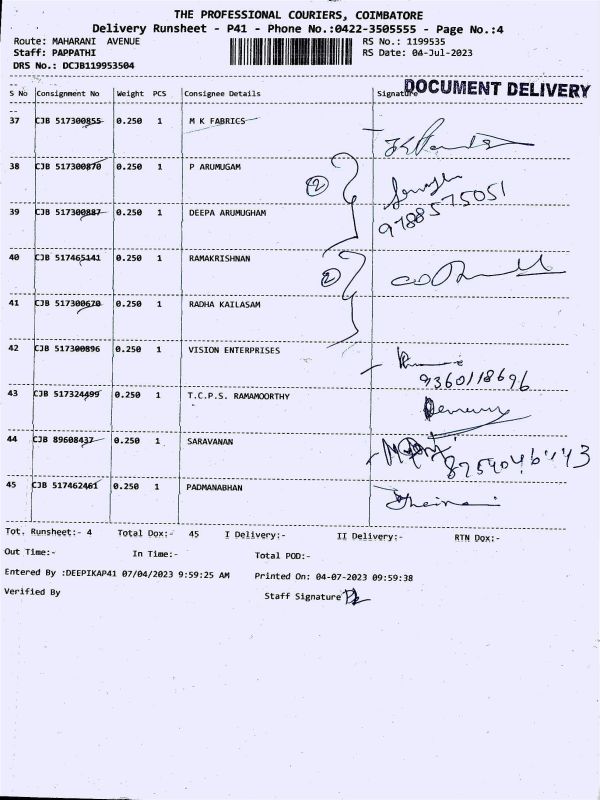 THE PROFESSIONAL COURIERS, COIMBATORE
Delivery Runsheet - P41 - Phone No.:0422-3505555 - Page No.:4
Route: MAHARANI AVENUE RS No.: 1199535
Staff: PAPPATHI RS Date: 04-Jul-2023
DRS No.: DCJB119953504
DOCUMENT DELIVERY
S No Consignment No Weight PCS Consignee Details Signature
37 CJB 517300855 0.250 1 M K FABRICS
38 CJB 517300870 0.250 1 P ARUMUGAM
2
9788575051
39 CJB 517300887 0.250 1 DEEPA ARUMUGHAM
40 CJB 517465141 0.250 1 RAMAKRISHNAN
2
41 CJB 517300670 0.250 1 RADHA KAILASAM
42 CJB 517300896 0.250 1 VISION ENTERPRISES
9360118696
43 CJB 517324499 0.250 1 T.C.P.S. RAMAMOORTHY
44 CJB 89608437 0.250 1 SARAVANAN
45 CJB 517462461 0.250 1 PADMANABHAN
Tot. Runsheet:- 4 Total Dox:- 45 I Delivery:- II Delivery:- RTN Dox:-
Out Time:- In Time:- Total POD:-
Entered By :DEEPIKAP41 07/04/2023 9:59:25 AM Printed On: 04-07-2023 09:59:38
Verified By Staff Signature